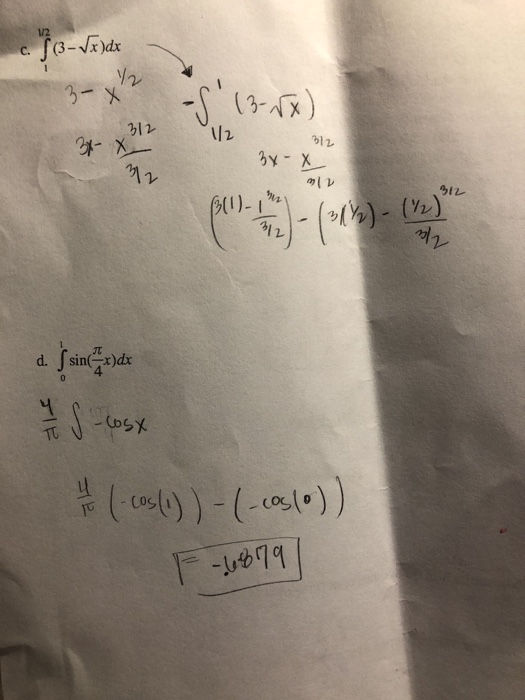 c. ∫₁^{1/2} (3-√x)dx
3 - x^{1/2}
-∫_{1/2}^1 (3-√x)
3x - x^{3/2} / 3/2
3x - x^{3/2} / 3/2
(3(1) - 1^{3/2} / 3/2) - (3(1/2) - (1/2)^{3/2} / 3/2
d. ∫₀^1 sin(π/4 x)dx
4/π ∫ -cosx
4/π (-cos(1)) - (-cos(0))
= -.6879